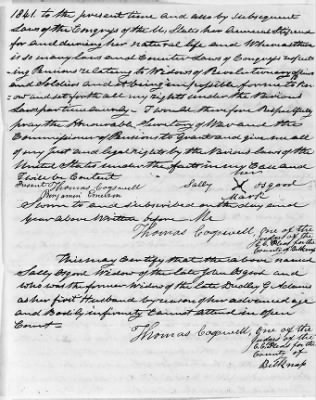 1841. to the present time and also by subsequent
Laws of the Congress of the U. States her Annual Stipend
for and during her natural life and Whereas there
is so many Laws and Counter Laws of Congress respect
ing Pensions relating to Widows of Revolutionary Officers
and Soldiers and it being impossible for me to
out and set forth all my rights under the Various
Laws pertaining I would therefore Respectfully
pray the Honorable Secretary of War and the
Commissioner of Pensions to Grant and give me all
of my just and legal rights by the Various Laws of the
United States under the facts in my Case and
I will be Content
her
Present Thomas Cogswell Sally X Osgood
Benjamin Emerson Mark
Sworn to and subscribed on the day and
Year above Written before Me
Thomas Cogswell, One of the
Judges of the
C. C. Pleas for the
County of Belknap
This may Certify that the above named
Sally Osgood Widow of the late John Osgood and
who was the former Widow of the late Dudley G. Adams
as her first Husband by reason of her advanced age
and Bodily infirmity Cannot attend in open
Court
Thomas Cogswell, One of the
Judges of the
C. C. Pleas for the
County of
Belknap